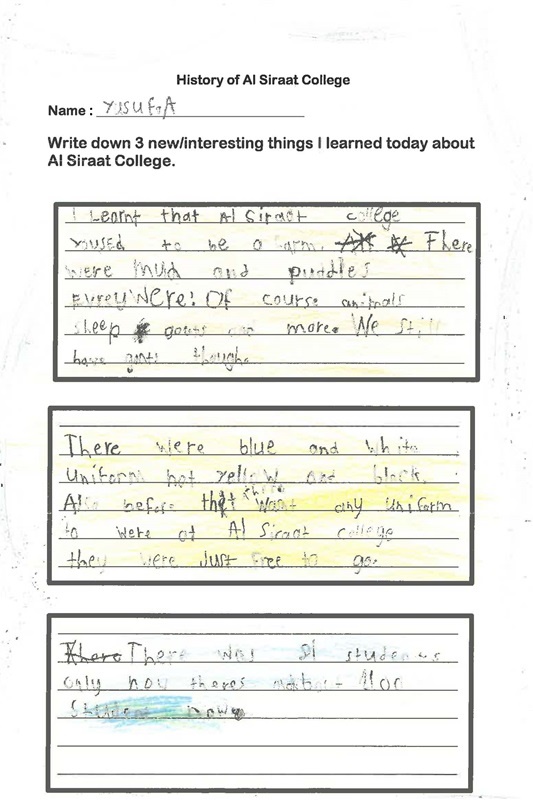 History of Al Siraat College
Name : YUSUF.A
Write down 3 new/interesting things I learned today about
Al Siraat College.
I Learnt that Al Siraat college
yoused to be a farm. There
were mud and puddles
Evreywere! Of course animals
sheep goats and more. We still
have goats though.
There were blue and white
Uniform not yellow and black.
Also before that there wasnt any Uniform
to were at Al Siraat college
they were Just free to go.
There was students
only now theres about
Student now